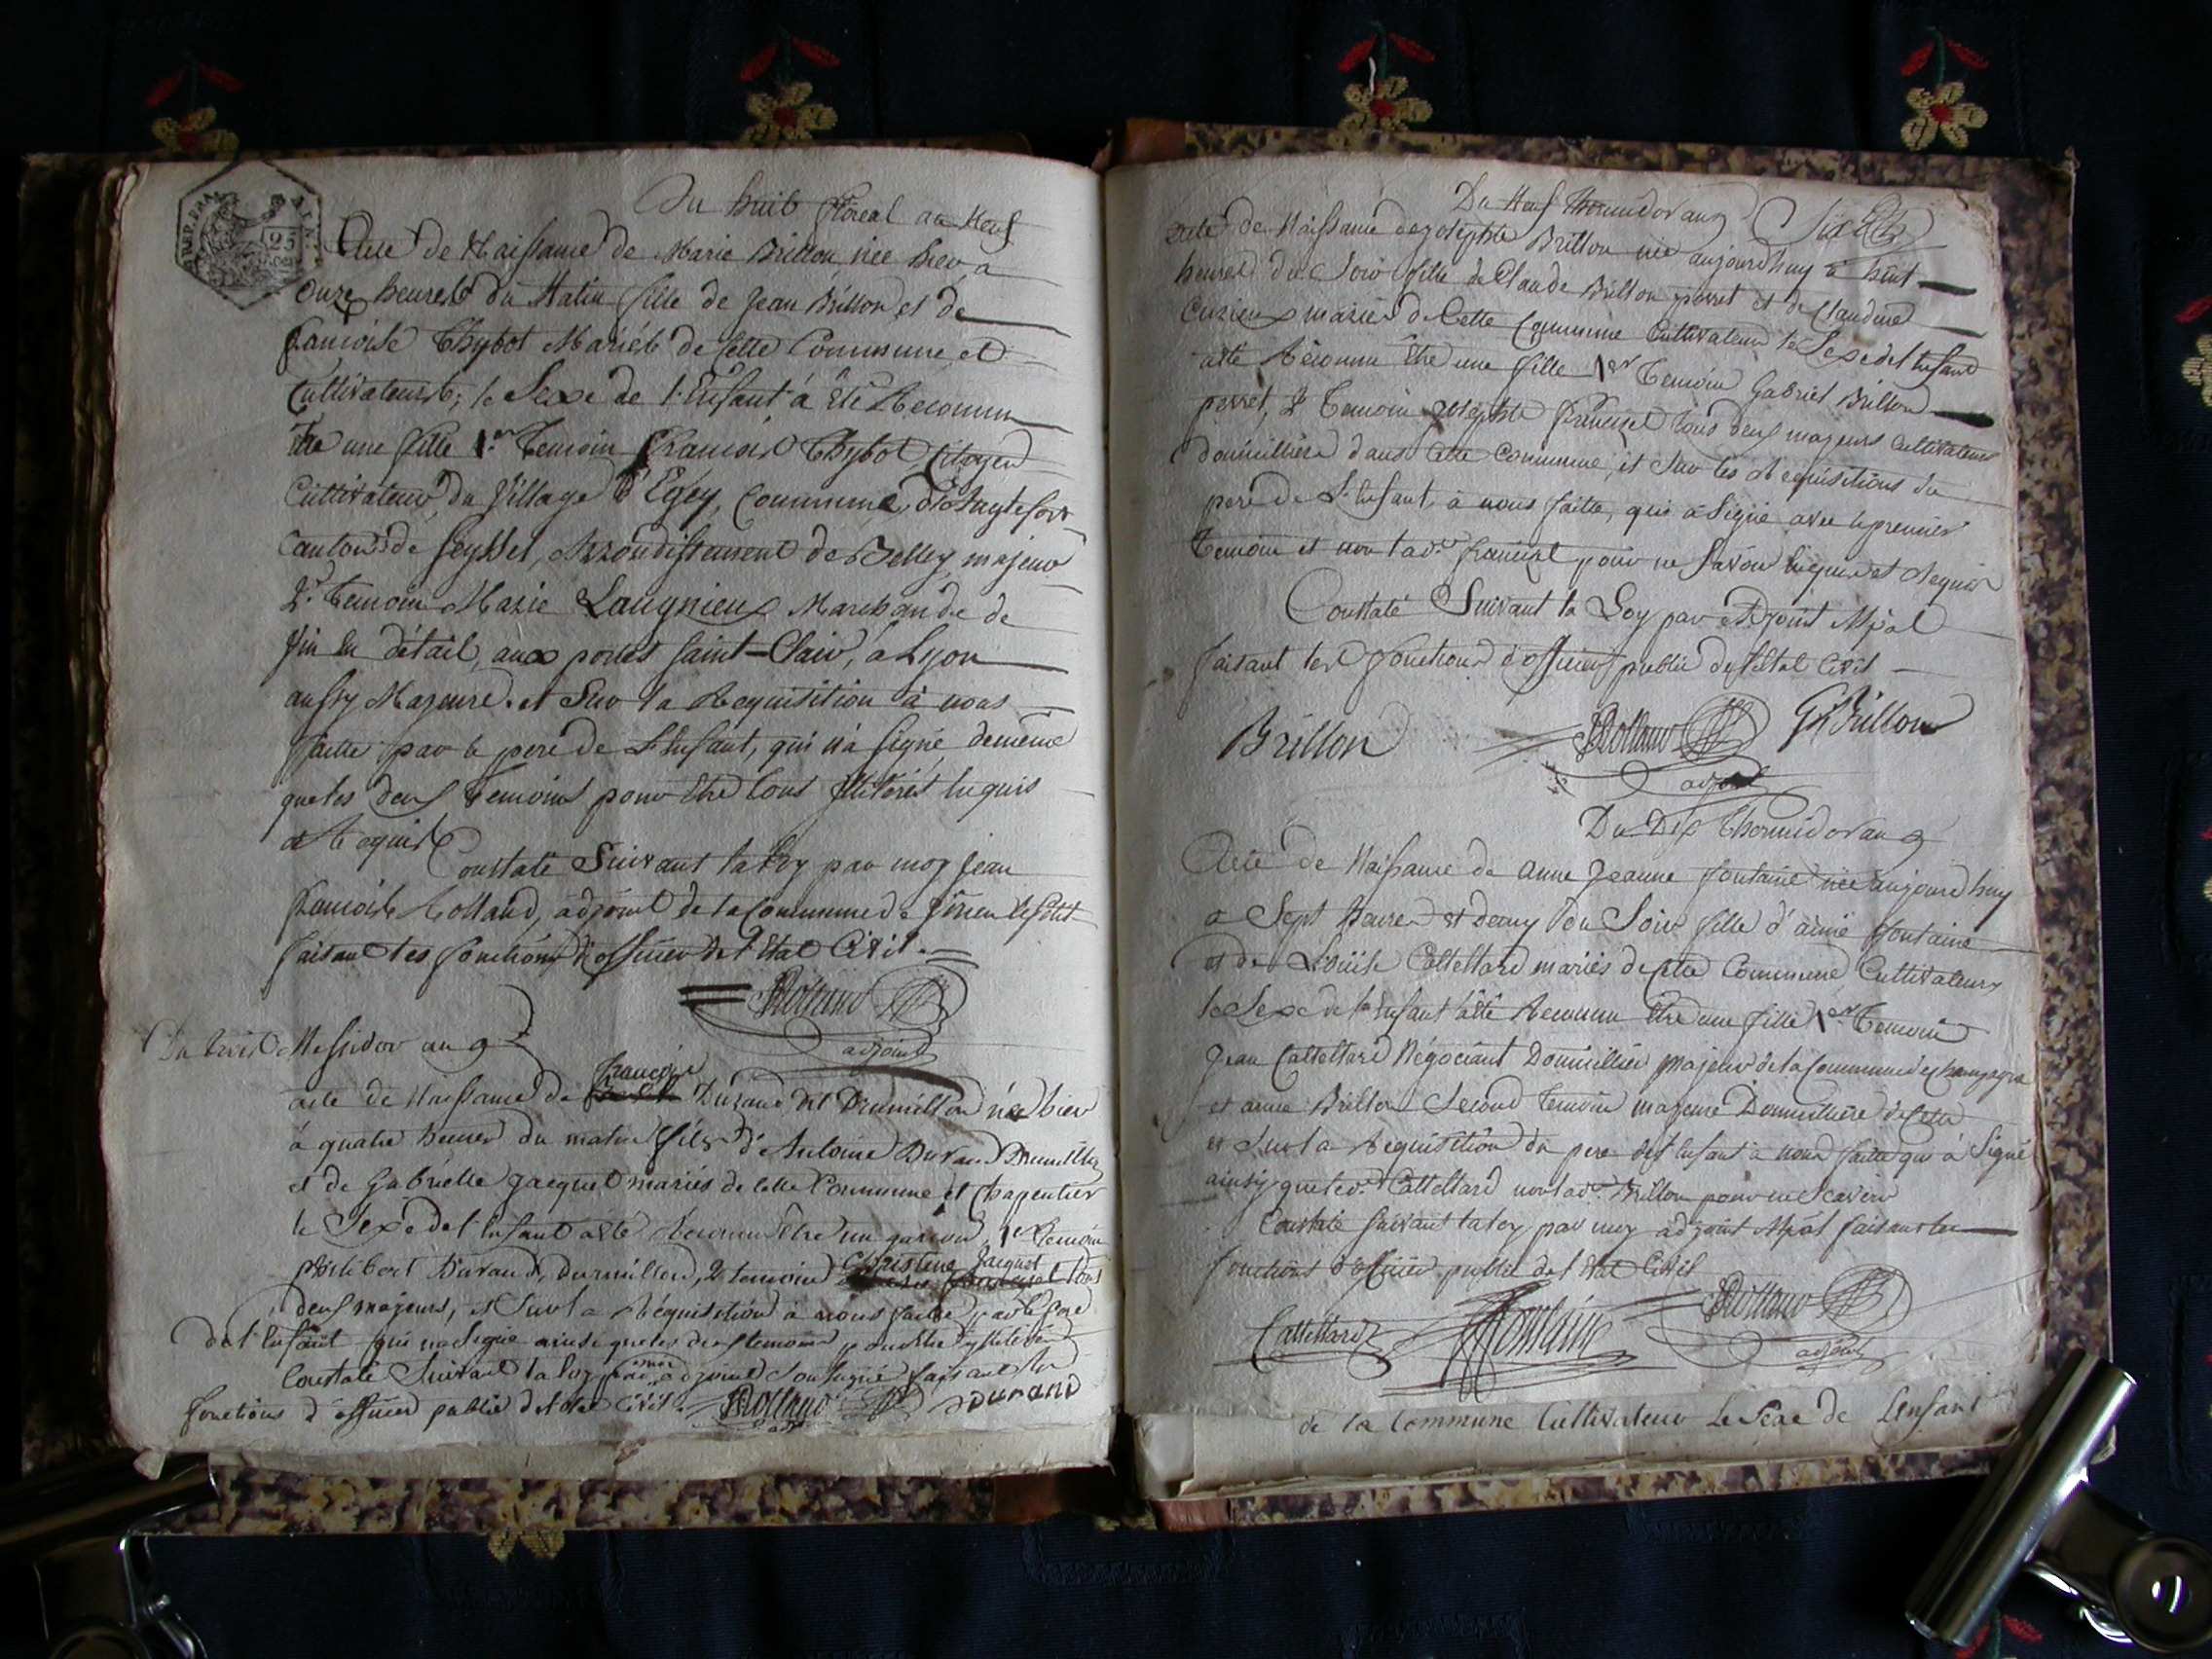 Du huit floreal an Neuf
Acte de Naissance de Marie Brillon née hier a
onze heures du Matin fille de Jean Brillon et de
francoise Thybot Mariés de cette Commune et
Cultivateurs; le Sexe de l'Enfant à Eté Reconnu
etre une fille 1er Temoin francois Thybot Citoyen
Cultivateur du Village Commune
Canton de Seyssel, Arrondissement de Belley, majeur
2e Temoin Marie Laugnieux Marchande de
Vin en détail, aux portes Saint-Clair, à Lyon
aussy Majeure. et Sur la Requisition à nous
faitte par le pere de L'Enfant, qui n'à Signé, demême
que les deux Temoins pour etre tous illiterés Enquis
et Requis
Constaté Suivant la Loy par moy Jean
francois Rolland, adjoint de la Commune de le petit
faisant les fonctions d'officier de l'Etat Civil.
Rolland
adjoint
Du trois Messidor an 9
francois
acte de Naissance de Durand dit Drumillon née hier
à quatre heures du matin fils d'Antoine Durand Drumillon
et de Gabrielle Jacquet mariés de cette Commune et Chapentier
le Sexe de l'Enfant a eté Reconnu etre un garcon, 1er Temoin
philibert Durand, durmillon, 2 temoin Christine Jaquet tous
deux majeurs, et Sur la Réquisition à nous faitte par le pere
de l'Enfant qui na Signé ainsi que les deux temoins pour etre illiteré
Constaté Suivant la loy par moi adjoint Soussigné faisant les
fonctions d'officier public de l'etat Civil. Rolland Durand
25
Du Neuf Thermidor an 9
Acte de Naissance de Josephte Brillon née aujourdhuy à huit
heures du Soir fille de Claude Brillon perret et de Claudine
Cuzieux mariés de Cette Commune Cultivateurs le Sexe de l'Enfant
a été Réconnu Etre une fille 1er Temoin Gabriel Brillon
perret, 2 Temoin Josephte tous deux majeurs Cultivateurs
domicilliés dans Cette Commune, et Sur les Requisitions du
pere de L'Enfant, à nous faitte, qui à Signé avec le premier
Temoin et non pour ne Savoir Enquis et Requis
Constaté Suivant la Loy par Adjoint Mpal
faisant les fonctions d'officier public de l'Etat Civil
Brillon Rolland GBrillon
adjoint
Du Dix Thermidor an 9
Acte de Naissance de Anne Jeanne fontaine née aujourdhuy
a Sept heures et demy du Soir fille d'aimé fontaine
et de Louise Cattellard mariés de cette Commune Cultivateurs
le Sexe de l'Enfant à été Reconnu Etre une fille 1er Temoin
Jean Cattellard Négociant Domicillié Majeur de la Commune de Champagne
et anne Brillon Second Temoin majeure Domicilliée de Cette
et Sur la Requisition du pere de l'Enfant à nous faitte qui à Signé
ainsy que led. Cattellard non lad. Brillon pour ne Scavoir
Constaté Suivant la loy par moy adjoint Mpal faisant les
fonctions d'officier public de l'Etat Civil
Cattellard fontaine Rolland
adjoint
de la Commune Cultivateur Le Sexe de Lenfant